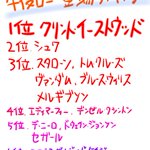 1位 クリントイーストウッド
2位 シュワ
3位 スタローン、トム・クルーズ
ヴァンダム、ブルース・ウィリス
メルギブソン
4位 エディ・マーフィー、デンゼルワシントン
5位 デニーロ、ドウェインジョンソン
セガール